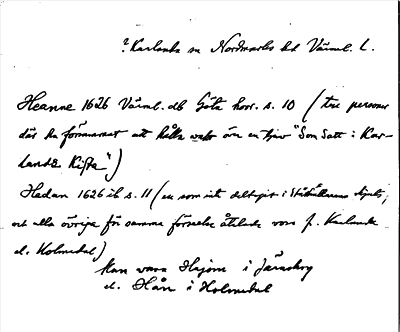 ? Karlanda sn Nordmarks hd Värml. L.
Heanne 1626 Värml. db Göta hovr. s. 10 (tre personer
där ha försummat att hålla vakt över en tjuv "Som Satt i Kar-
landa Kista")
Hadan 1626 ib s. 11 (en som inte deltagit i
och alla övriga för samma förseelse åtalade voro f. Karlanda
el. Holmedal)
Kan vara Hajom i Järnskog
el. Hån i Holmedal